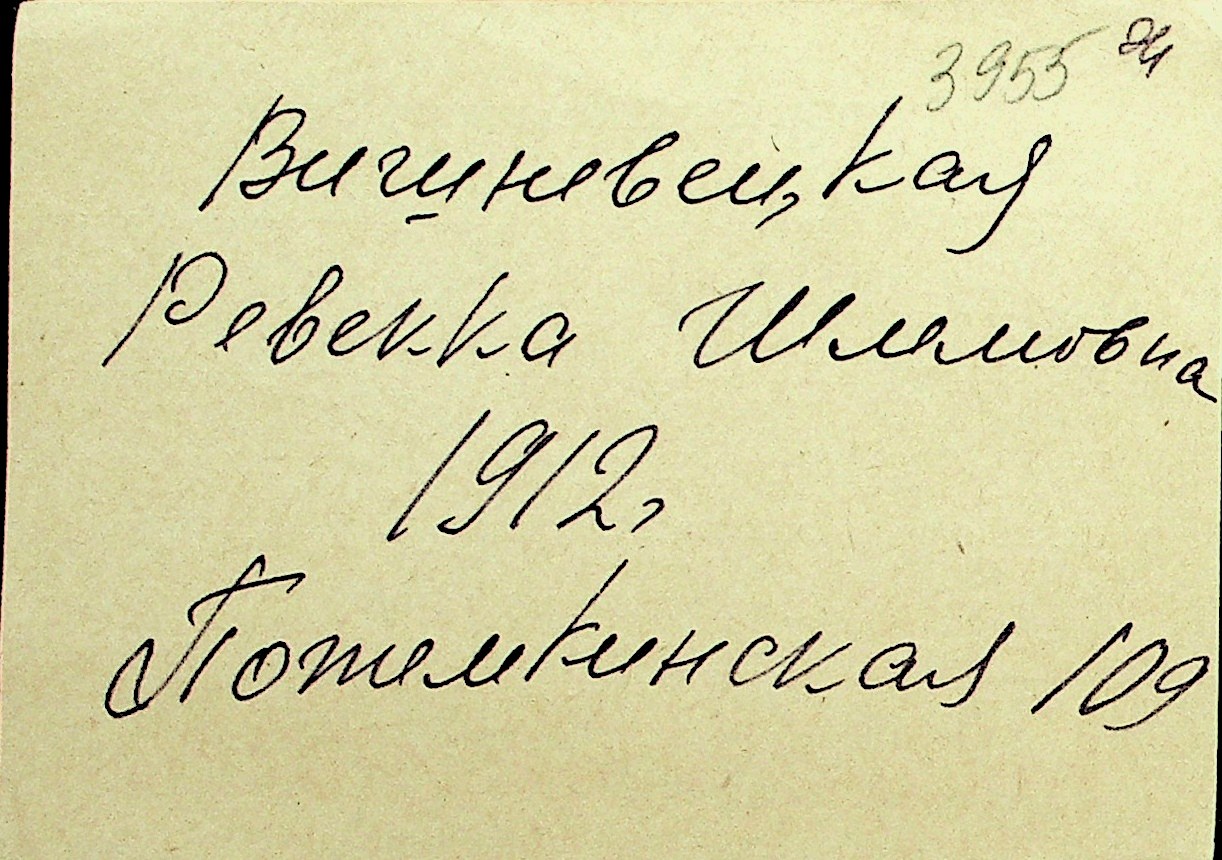 3955
Вишневецкая
Ревекка Шлемовна
1912г
Потемкинская 109